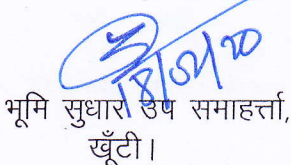 18/02/20
भूमि सुधार उप समाहर्त्ता,
खूँटी।